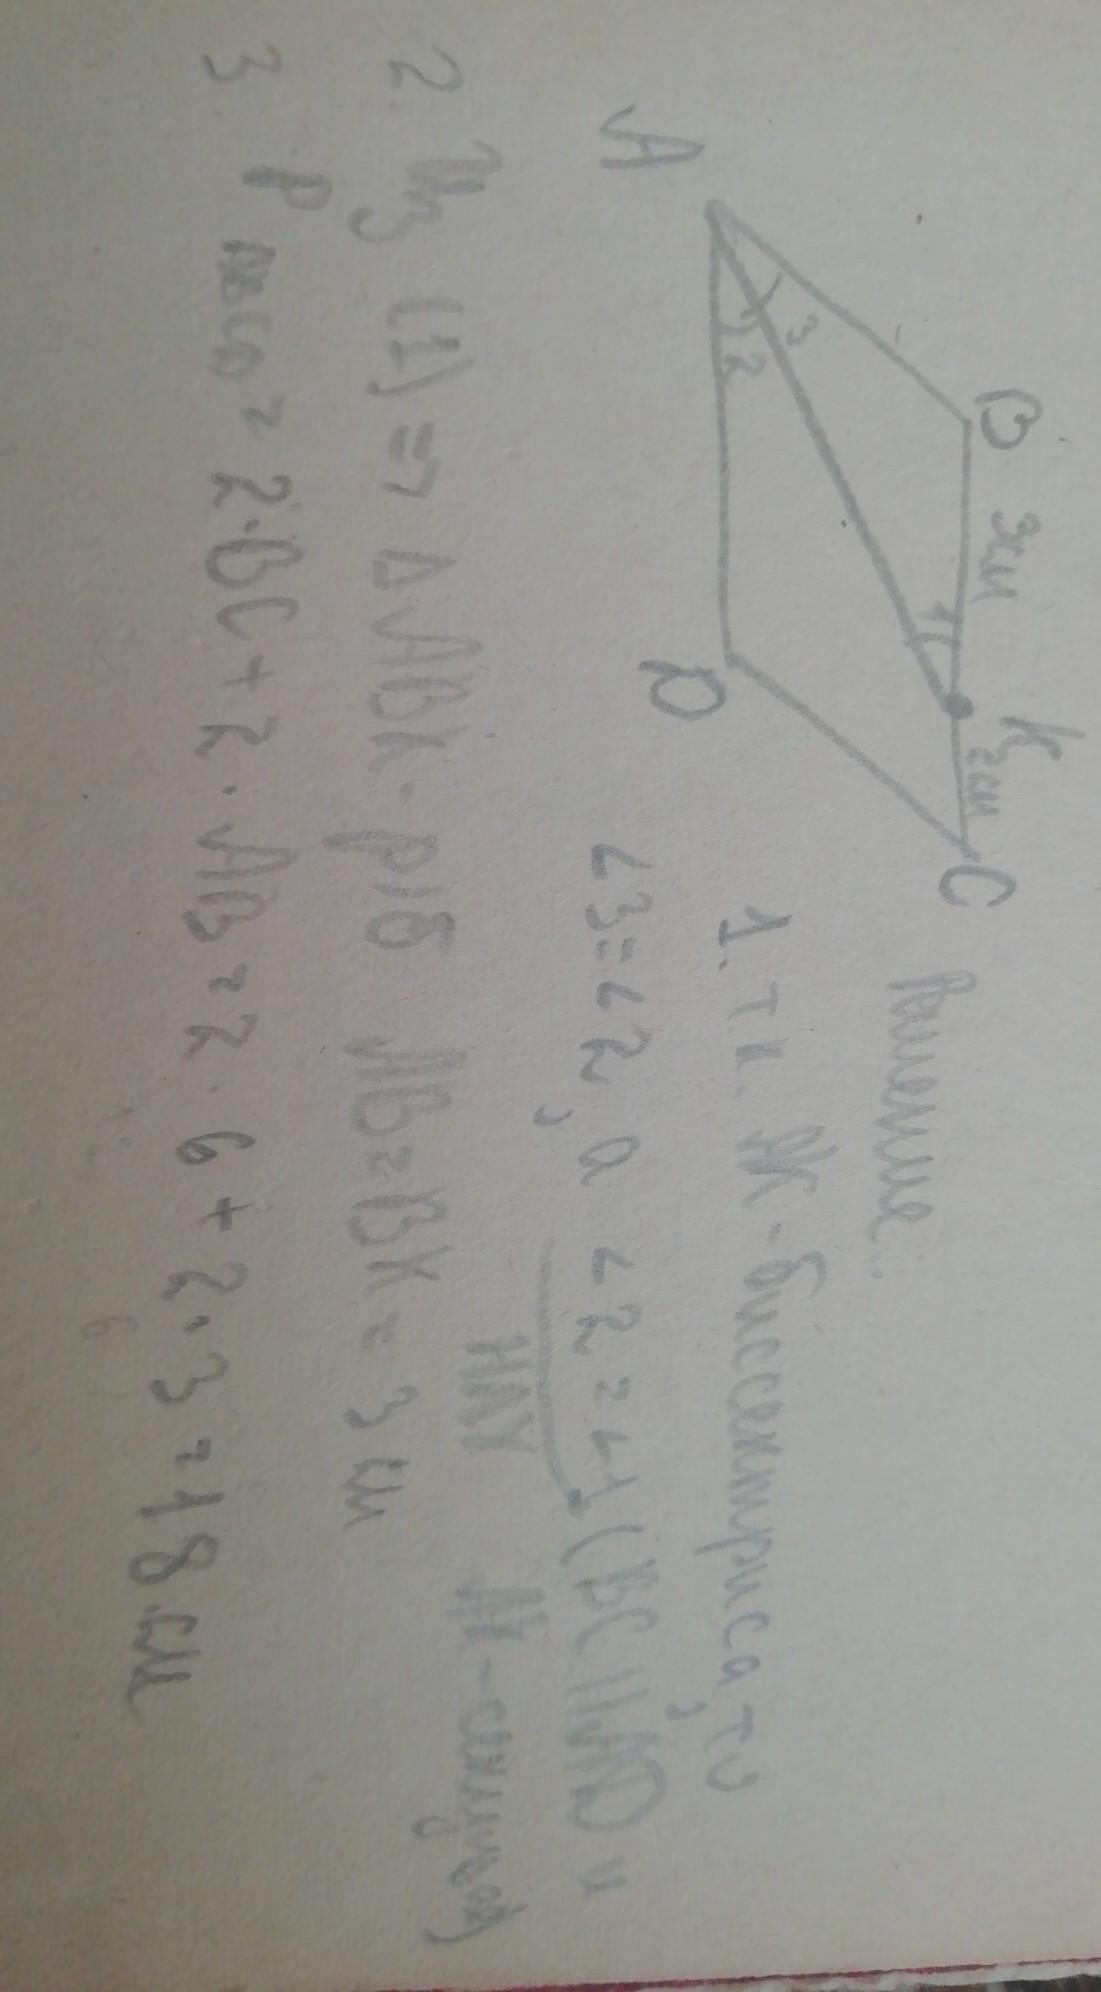 B 3см K 2см C
3
1
2
A
D
Решение:
1. т.к. AK - биссектриса, то
∠3=∠2, а ∠2=∠1 (BC || AD и
НЛУ AK - секущая)
2. Из (1) => Δ ABK - р/б AB=BK=3 см
3 P ABCD = 2·BC+2·AB=2·6+2·3=18 см
6